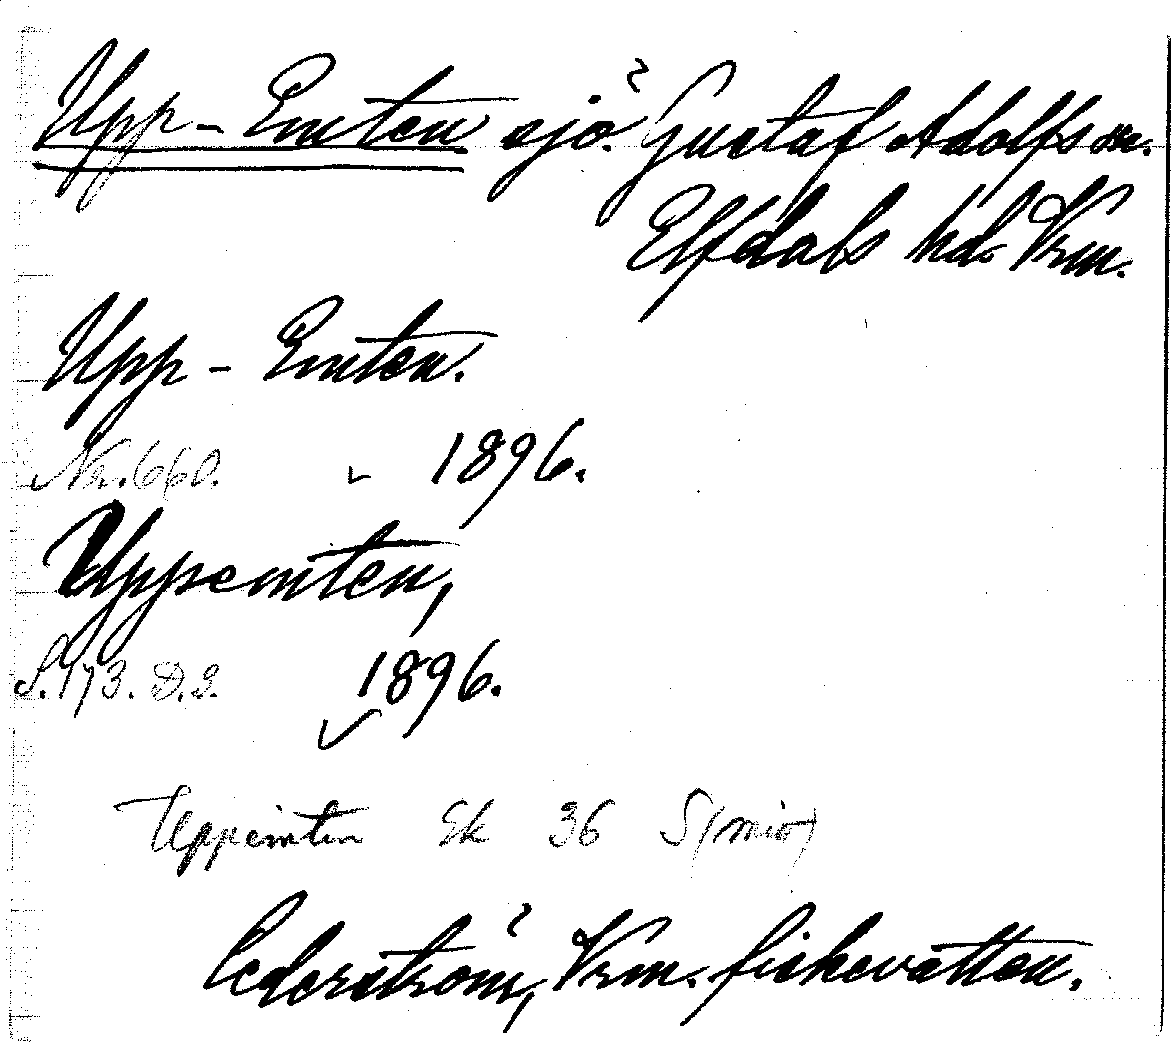 Upp-Emten sjö. Gustaf Adolfs sn.
Elfdals hd. Vrm.
Upp-Emten.
Nr. 660. 1896.
Uppemten,
S. 173. D. 2. 1896.
Uppemten Ek 36 S
Cederström, Vrm. fiskevatten.